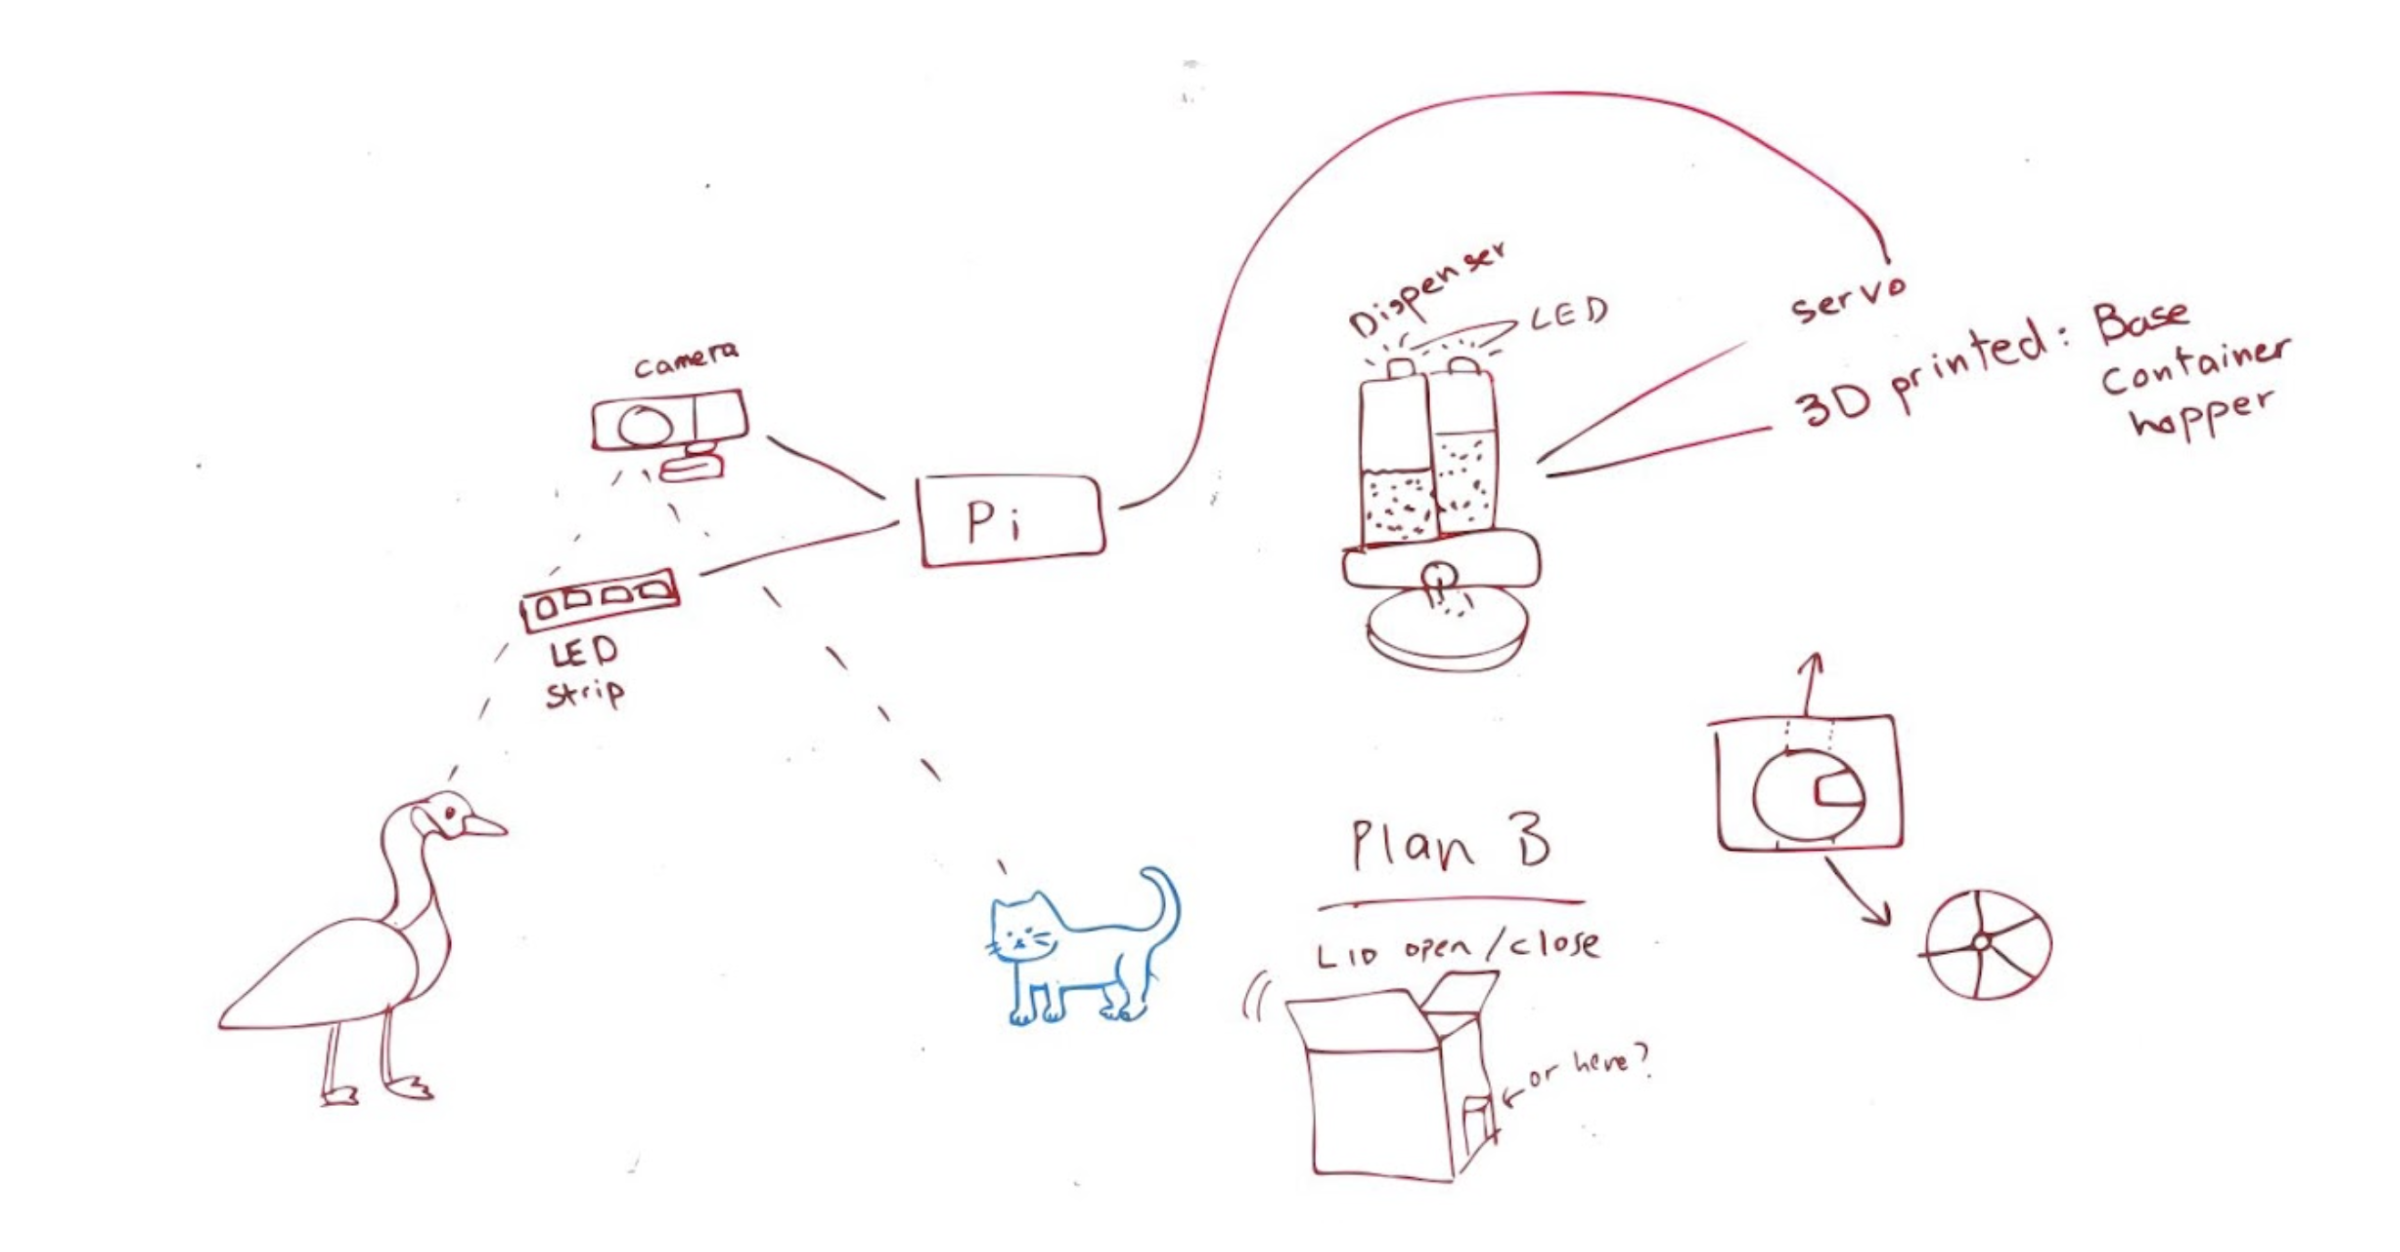 Camera
LED
strip
Pi
Dispenser
LED
servo
3D printed: Base
Container
hopper
Plan B
LID open/close
or here?